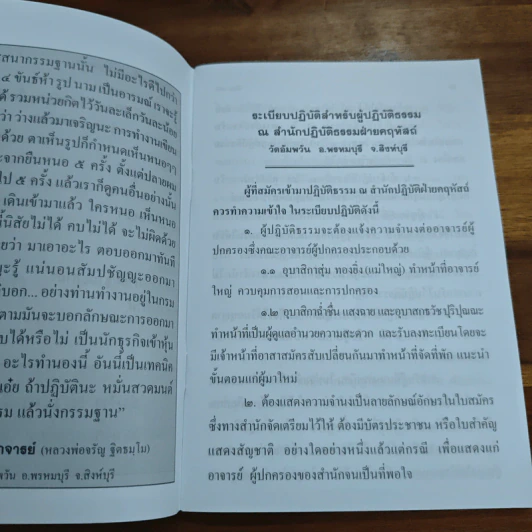 สนากรรมฐานนั้น ไม่มีอะไรดีไปกว่า
๔ ขันธ์ห้า รูป นาม เป็นอารมณ์ เราจะรู้
ด้ รวมหน่วยกิตไว้วันละเล็กวันละน้อย
ว่า ว่างแล้วมาเจริญนะ การทำงานเขียน
ด้วย ตาเห็นรูปก็กำหนดเห็นหนอๆๆ
ะจากยืนหนอ ๕ ครั้ง ตั้งแต่ปลายผม
ไป ๕ ครั้ง แล้วเราก็ดูคนอื่นอย่างนั้น
เดินเข้ามาแล้ว ใครหนอ เห็นหนอ
นิสัยไม่ได้ คบไม่ได้ จะไม่ผิดด้วย
ว่า มาเอาอะไร ตอบออกมาทันที
ะรู้ แน่นอนสัมปชัญญะออกมา
บอก... อย่างท่านทำงานอยู่ในกรม
ตามมันจะบอกลักษณะการออกมา
บได้หรือไม่ เป็นนักธุรกิจเข้าหุ้น
อะไรทำนองนี้ อันนี้เป็นเทคนิค
เอ๋ย ถ้าปฏิบัตินะ หมั่นสวดมนต์
รม แล้วนั่งกรรมฐาน”
าจารย์ (หลวงพ่อจรัญ ฐิตธมฺโม)
พวัน อ.พรหมบุรี จ.สิงห์บุรี
ระเบียบปฏิบัติสำหรับผู้ปฏิบัติธรรม
ณ สำนักปฏิบัติธรรมฝ่ายคฤหัสถ์
วัดอัมพวัน อ.พรหมบุรี จ.สิงห์บุรี
ผู้ที่สมัครเข้ามาปฏิบัติธรรม ณ สำนักปฏิบัติฝ่ายคฤหัสถ์
ควรทำความเข้าใจ ในระเบียบปฏิบัติดังนี้
๑. ผู้ปฏิบัติธรรมจะต้องแจ้งความจำนงต่ออาจารย์ผู้
ปกครองซึ่งคณะอาจารย์ผู้ปกครองประกอบด้วย
๑.๑ อุบาสิกาสุ่ม ทองยิ่ง (แม่ใหญ่) ทำหน้าที่อาจารย์
ใหญ่ ควบคุมการสอนและการปกครอง
๑.๒ อุบาสิกาถ้ำชื่น แสงฉาย และอุบาสกธวัช
ทำหน้าที่เป็นผู้ดูแลอำนวยความสะดวก และรับลงทะเบียน โดยจะ
มีเจ้าหน้าที่อาสาสมัครสับเปลี่ยนกันมาทำหน้าที่จัดที่พัก แนะนำ
ขั้นตอนแก่ผู้มาใหม่
๒. ต้องแสดงความจำนงเป็นลายลักษณ์อักษรในใบสมัคร
ซึ่งทางสำนักจัดเตรียมไว้ให้ ต้องมีบัตรประชาชน หรือใบสำคัญ
แสดงสัญชาติ อย่างใดอย่างหนึ่งแล้วแต่กรณี เพื่อแสดงแก่
อาจารย์ ผู้ปกครองของสำนักจนเป็นที่พอใจ